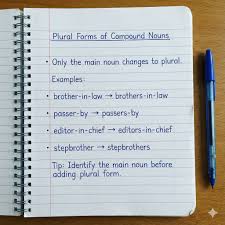 Plural Forms of Compound Nouns
• Only the main noun changes to plural.
Examples:
• brother-in-law → brothers-in-law
• passer-by → passers-by
• editor-in-chief → editors-in-chief
• stepbrother → stepbrothers
Tip: Identify the main noun before
adding plural form.